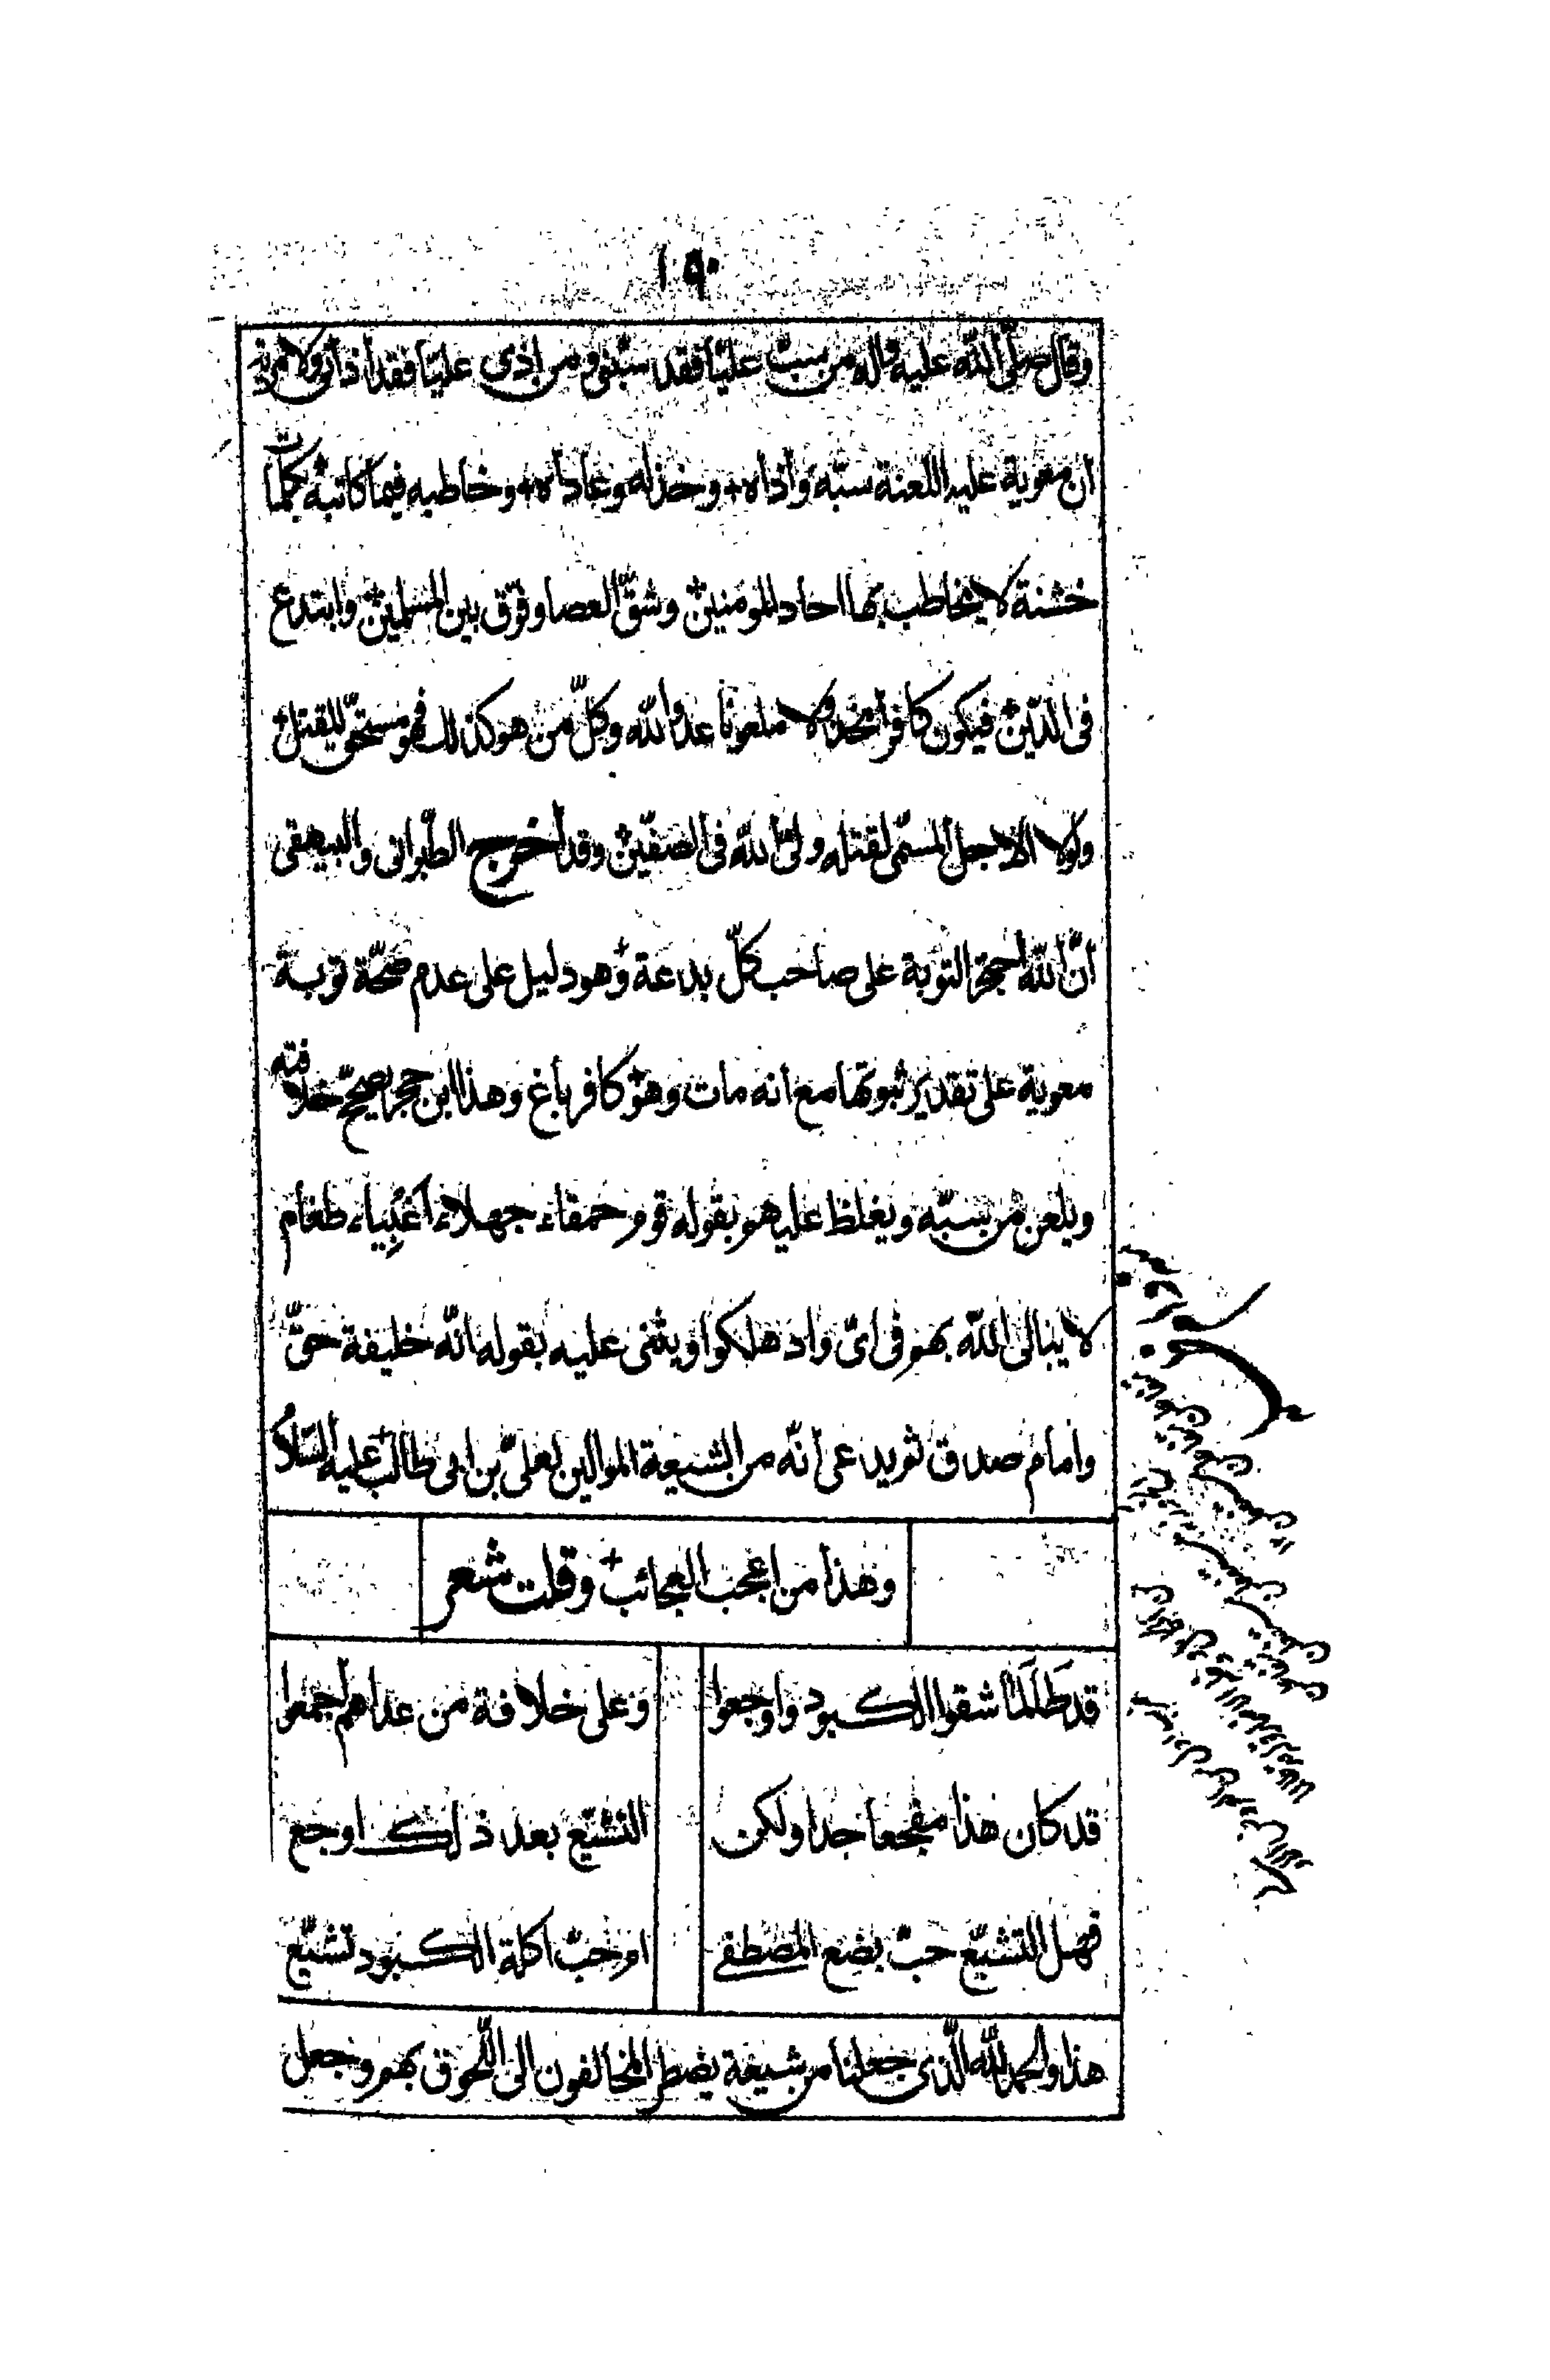 ١٩٠
وقال صلّى اللّه عليه واله من سبّ عليّا فقد سبّنى ومن اذى عليّا فقد اذانى ولا مرية
ان معوية عليه اللعنة سبّه واذاه وخذله وعاداه وخاطبه فيما كاتبه بكلمات
خشنة لا يخاطب بها احاد المومنين وشقّ العصا وفرّق بين المسلمين وابتدع
فى الدّين فيكون كافرا مخذولا ملعونا عدو اللّه وكلّ من هو كذلك فهو مستحقّ للقتل
ولولا الاجل المسمّى لقتله ولىّ اللّه فى الصفّين وقد اخرج الطّبرانى والبيهقى
انّ اللّه احتجز التوبة على صاحب كلّ بدعة وهو دليل على عدم صحّة توبة
معوية على تقدير ثبوتها مع انه مات وهو كافر باغ وهذا ابن حجر يصحّح خلافته
ويلعن من يسبّه ويغلظ عليهم بقوله قوم حمقاء جهلاء اغبياء طغام
لا يبالى اللّه بهم فى اىّ واد هلكوا ويثنى عليه بقوله انّه خليفة حقّ
وامام صدق ثم يدعى انّه من الشيعة الموالين لعلىّ بن ابى طالب عليه السّلام
وهذا من اعجب العجائب وقلت شعر
قد طَلَمَا شقوا الكبود واوجعوا وعلى خلافة من عداهم اجمعوا
قد كان هذا مفجعا جدا ولكن التشيّع بعد ذلك اوجع
فهل التشيّع حبّ بضع المصطفى ام حبّ اكلة الكبود تشيّع
هذا والحمد للّه الّذى جعلنا من شيعة يضطر المخالفون الى اللّحوق بهم وجعل